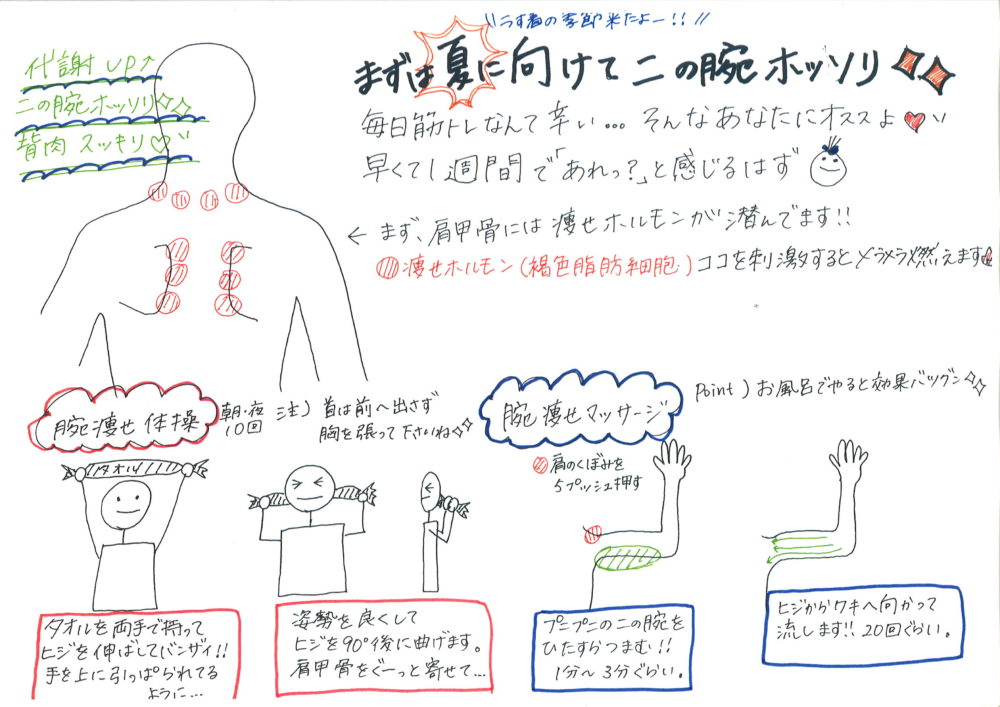 \\うす着の季節来たよー!!//
まずは夏に向けて二の腕ホッソリ
代謝UP↑
二の腕ホッソリ
背肉スッキリ♡
毎日筋トレなんて辛い…そんなあなたにオススメ
早くて1週間で「あれっ?」と感じるはず
← まず、肩甲骨には痩せホルモンが潜んでます!!
痩せホルモン(褐色脂肪細胞)ココを刺激するとメラメラ燃えます
腕痩せ体操
朝・夜
10回
注)首は前へ出さず
胸を張って下さいね
腕痩せマッサージ
Point)お風呂でやると効果バツグン
タオル
肩のくぼみを
5プッシュ押す
タオルを両手で持って
ヒジを伸ばしてバンザイ!!
手を上に引っぱられてる
ように…
姿勢を良くして
ヒジを90°後に曲げます。
肩甲骨をぐーっと寄せて…
プニプニの二の腕を
ひたすらつまむ!!
1分〜3分ぐらい。
ヒジからワキへ向かって
流します!!20回ぐらい。